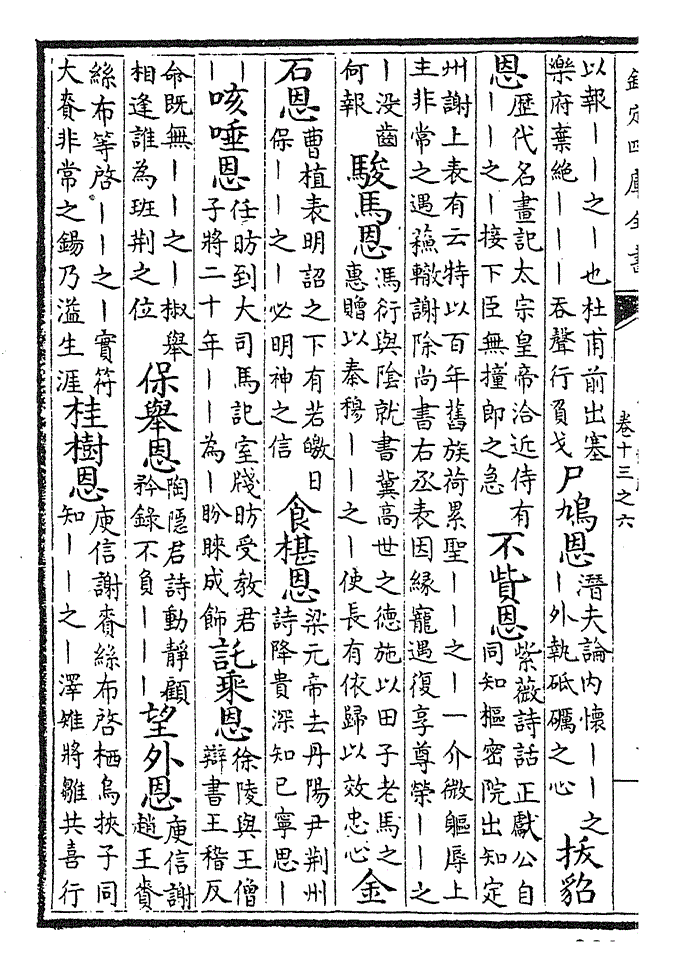 欽定四庫全書
卷十三之六
以報――之―也杜甫前出塞
樂府棄絶―――吞聲行負戈
尸鳩恩
潛夫論内懷――之
―外執砥礪之心
拔貂
恩
歴代名畫記太宗皇帝洽近侍有
――之―接下臣無撞郎之急
不貲恩
紫薇詩話正獻公自
同知樞密院出知定
州謝上表有云特以百年舊族荷累聖――之―一介微軀辱上
主非常之遇蘓轍謝除尚書右丞表因縁寵遇復享尊榮――之
―没齒
何報
駿馬恩
馮衍與陰就書冀高世之德施以田子老馬之
惠贈以秦穆――之―使長有依歸以效忠心
金
石恩
曹植表明詔之下有若皦日
保――之―必明神之信
食椹恩
梁元帝去丹陽尹荆州
詩降貴深知已寧思―
―
―
咳唾恩
任昉到大司馬記室牋昉受教君
子將二十年――為―盼睞成飾
託乘恩
徐陵與王僧
辯書王稽反
命既無――之―椒舉
相逢誰為班荆之位
保舉恩
陶隠君詩動靜顧
矜錄不負―――
望外恩
庾信謝
趙王賚
絲布等啓――之―實符
大賚非常之錫乃溢生涯
桂樹恩
庾信謝賚絲布啓栖烏挾子同
知――之―澤雉將雛共喜行